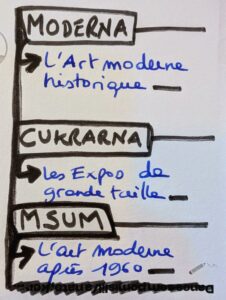 MODERNA
L'Art moderne
historique
CUKRARNA
les Expos de
grande taille
MSUM
L'art moderne
après 1960